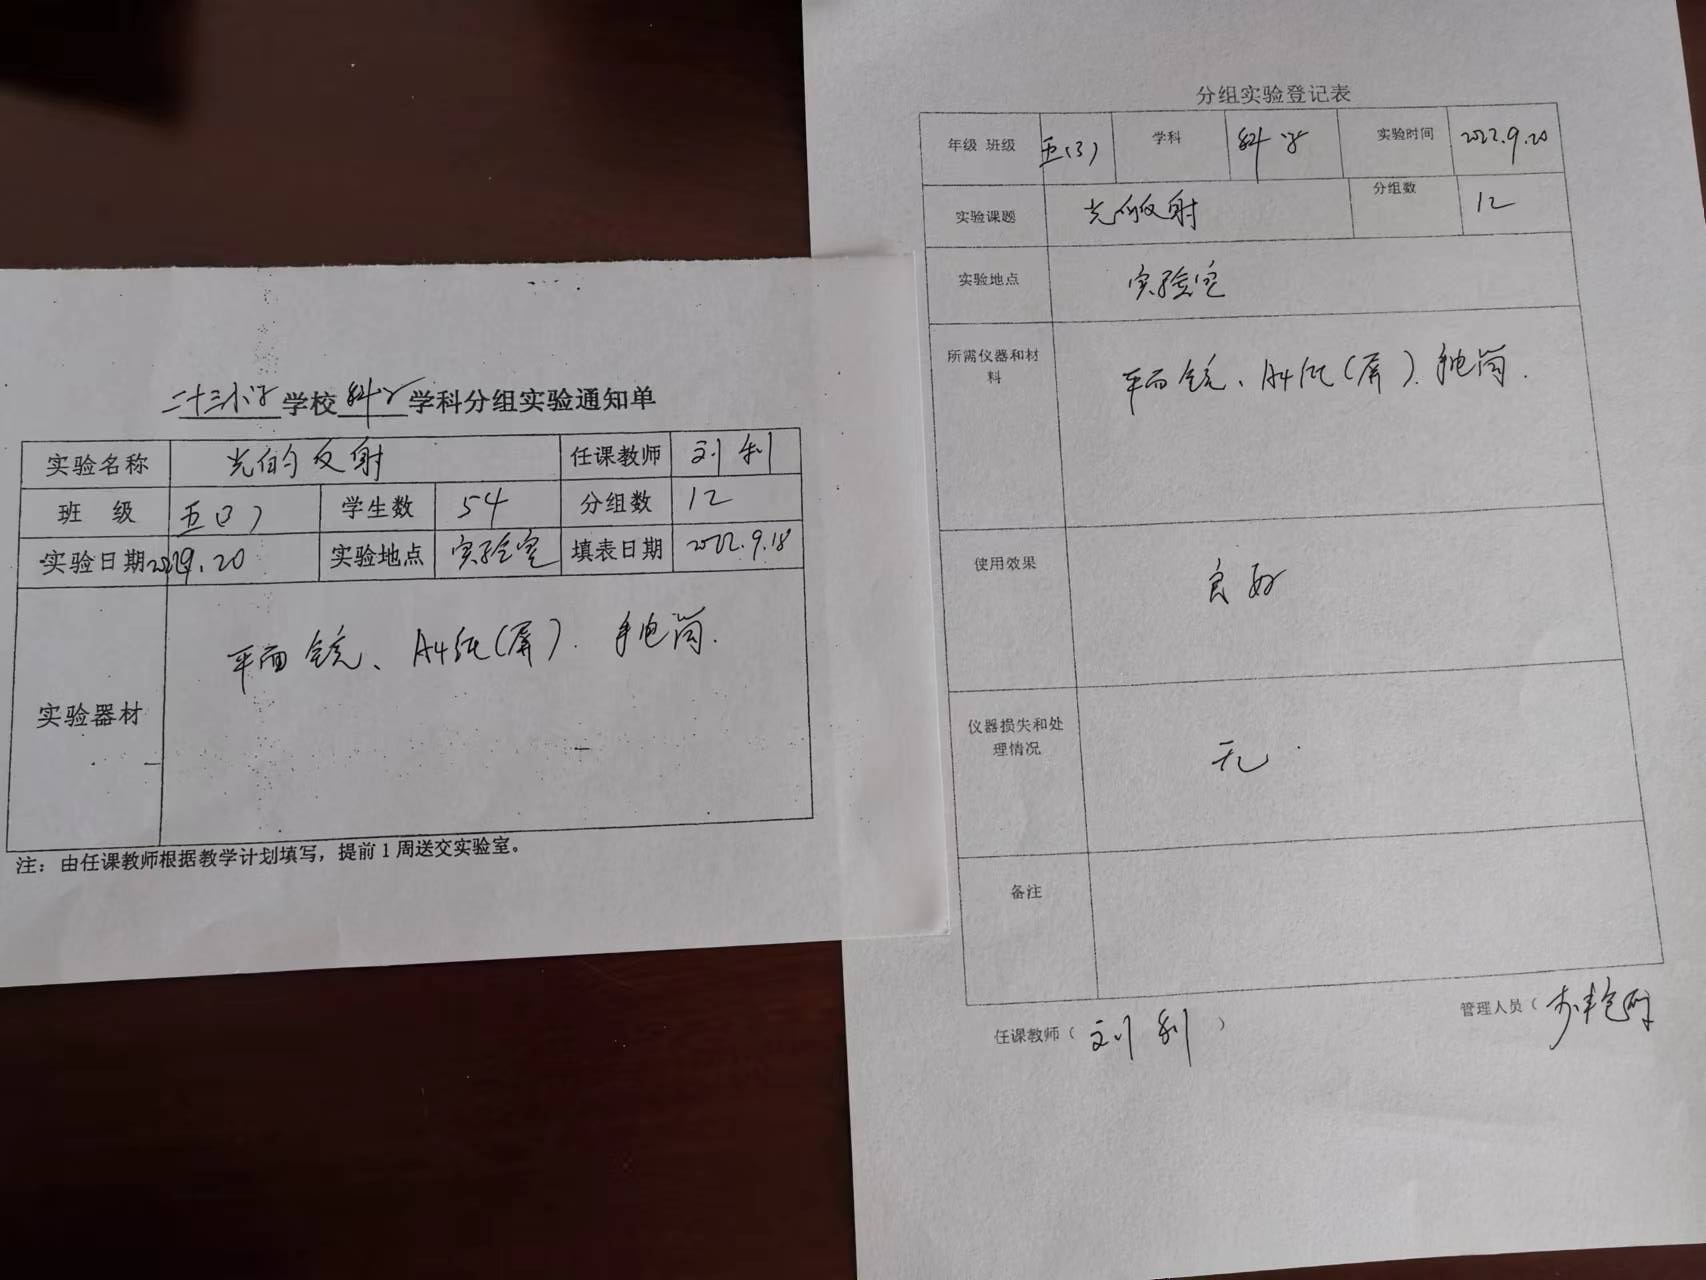 二十三小学学校科学学科分组实验通知单
实验名称 光的反射 任课教师 刘利
班 级 五(3) 学生数 54 分组数 12
实验日期 2022.9.20 实验地点 实验室 填表日期 2022.9.18
实验器材 平面镜、A4纸(屏).手电筒.
注：由任课教师根据教学计划填写，提前1周送交实验室。
分组实验登记表
年级 班级 五(3) 学科 科学 实验时间 2022.9.20
实验课题 光的反射 分组数 12
实验地点 实验室
所需仪器和材
料 平面镜、A4纸(屏).手电筒.
使用效果 良好
仪器损失和处
理情况 无.
备注
任课教师（刘利）
管理人员（